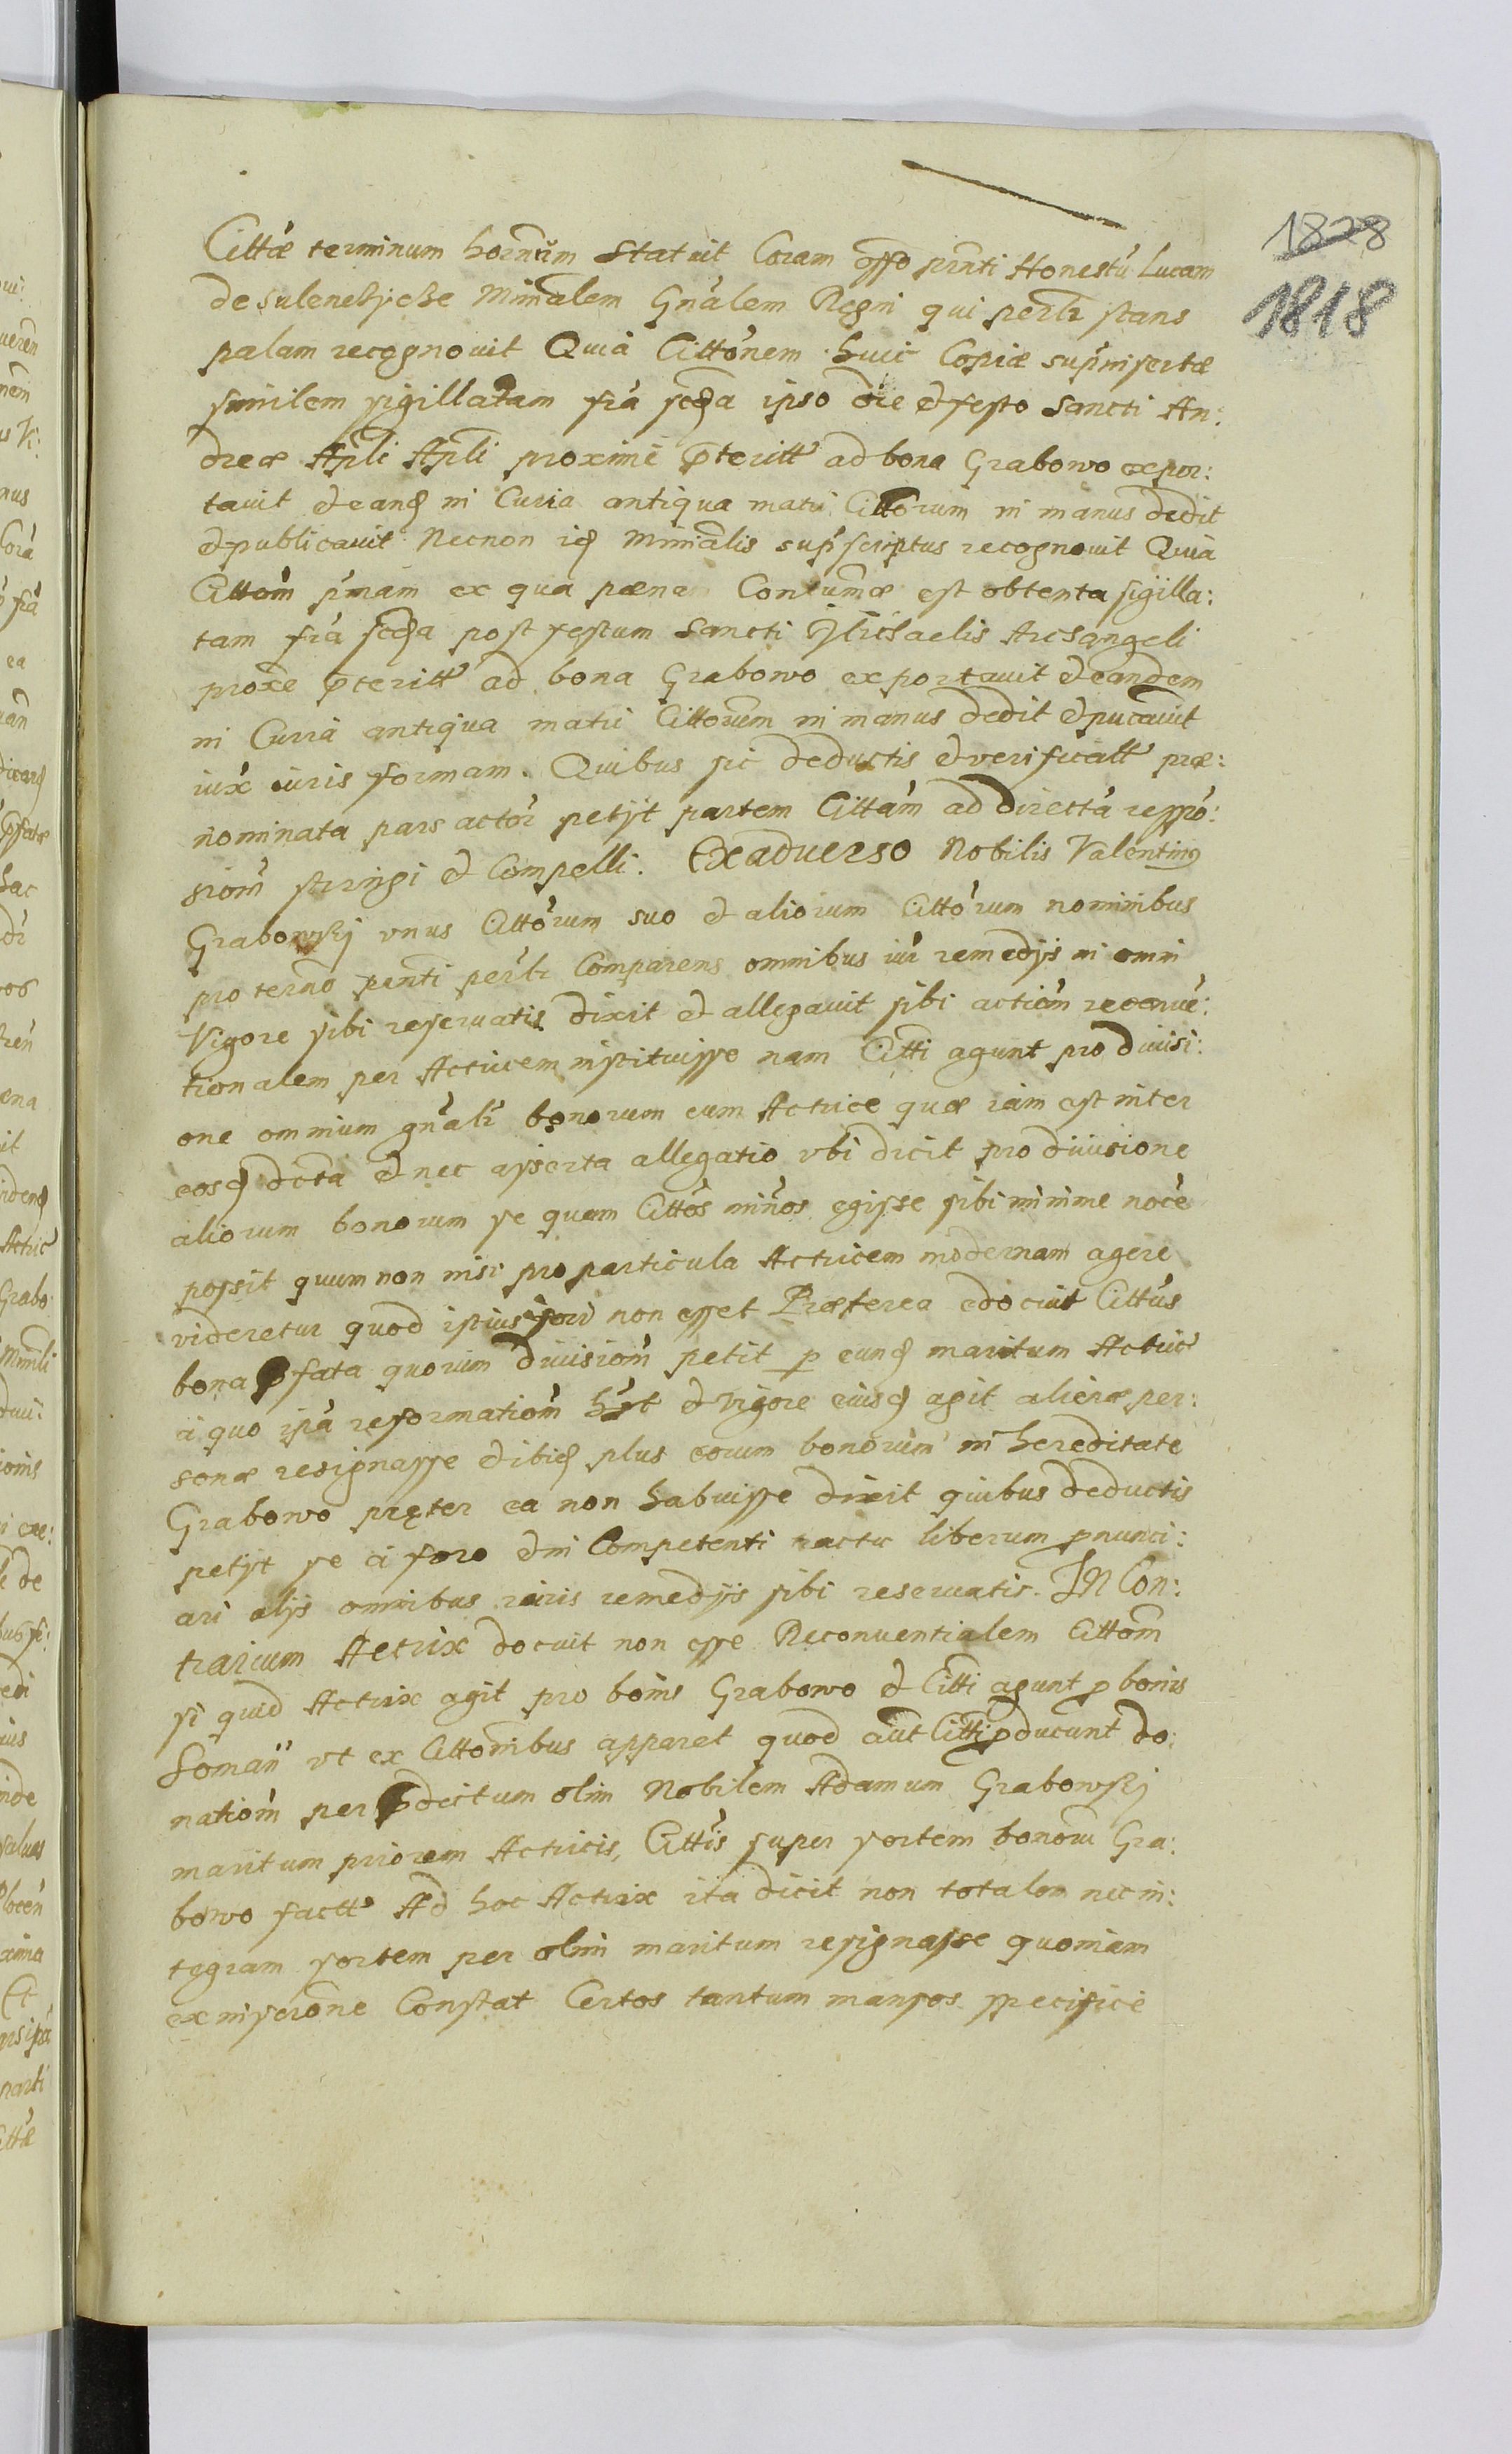 1828
1818
Cittæ terminum hornũm statuit Coram offo pñti Honestũ Lucam
de Minãlem Gnãlem Regni qui perlr stans
palam recognouit Quia Cittõnem huic Copiæ supinsertæ
similem sigillatam fia scđa ipso die et festo Sancti An:
dreæ Apli Apli proxime p̃teritt ad bona Grabowo expor:
tauit et eanđ in Curia antiqua matri Cittorum in manus dedit
et publicauit Necnon iđ Minĩalis supscriptus recognouit Quia
Cittom pmam ex qua pæna Contumæ est obtenta sigilla:
tam fia scđa post festum Sancti Michaelis Archangeli
proxe p̃teritt ad bona Grabowo exportauit et eandem
in Curia antiqua matri Cittorum in manus dedit et pucauit
iux iuris formam. Quibus sic deductis et verificatt præ:
nominata pars actor petijt partem Cittam ad directã respõ:
sionm stringi et Compelli. Ex aduerso Nobilis Valentinus
Grabowskj vnus Cittorum suo et aliorum Cittorum nominibus
pro termo pnti perlr Comparens omnibus iur remedijs in omni
Vigore sibi reseruatis dixit et allegauit sibi actiom reconue:
tionalem per Actricem instituisse nam Citti agunt pro diuisi:
one omnium gnalr bonorum cum Actrice quæ iam est inter
eosđ dcta et nec asserta allegatio vbi dicit pro diuisione
aliorum bonorum se quam Cittos minos egisse sibi minime noce
possit quum non nisi pro particula Actricem modernam agere
videretur quod istius fori non esset Præterea edocuit Cittus
bona p̃fata quorum diuisiom petit p eunđ maritum Actric
a quo ipa reformatiom hẽt et vigore eiusđ agit alienæ per:
sonæ resignasse et ibiđ plus eorum bonorum in hereditate
Grabowo pręter ea non habuisse dixit quibus deductis
petijt se a foro et in Competenti actu liberum pnunci:
ari alijs omnibus iuris remedijs sibi reseruatis. IN Con:
trarium Actrix docuit non esse Reconuentialem Cittom
si quid Actrix agit pro bonis Grabowo et Citti agunt p bonis
vt ex Cittombus apparet quod aut Citti pducunt do:
natiom per p̃dictum olim Nobilem Adamum Grabowskj
maritum priorem Actricis, Cittis super sortem bonorũ Gra:
bowo factt Ad hoc Actrix ita dicit non totalem nec in:
tegram sortem per olim maritum resignasse quoniam
ex inscrone Constat Certos tantum mansos specifice